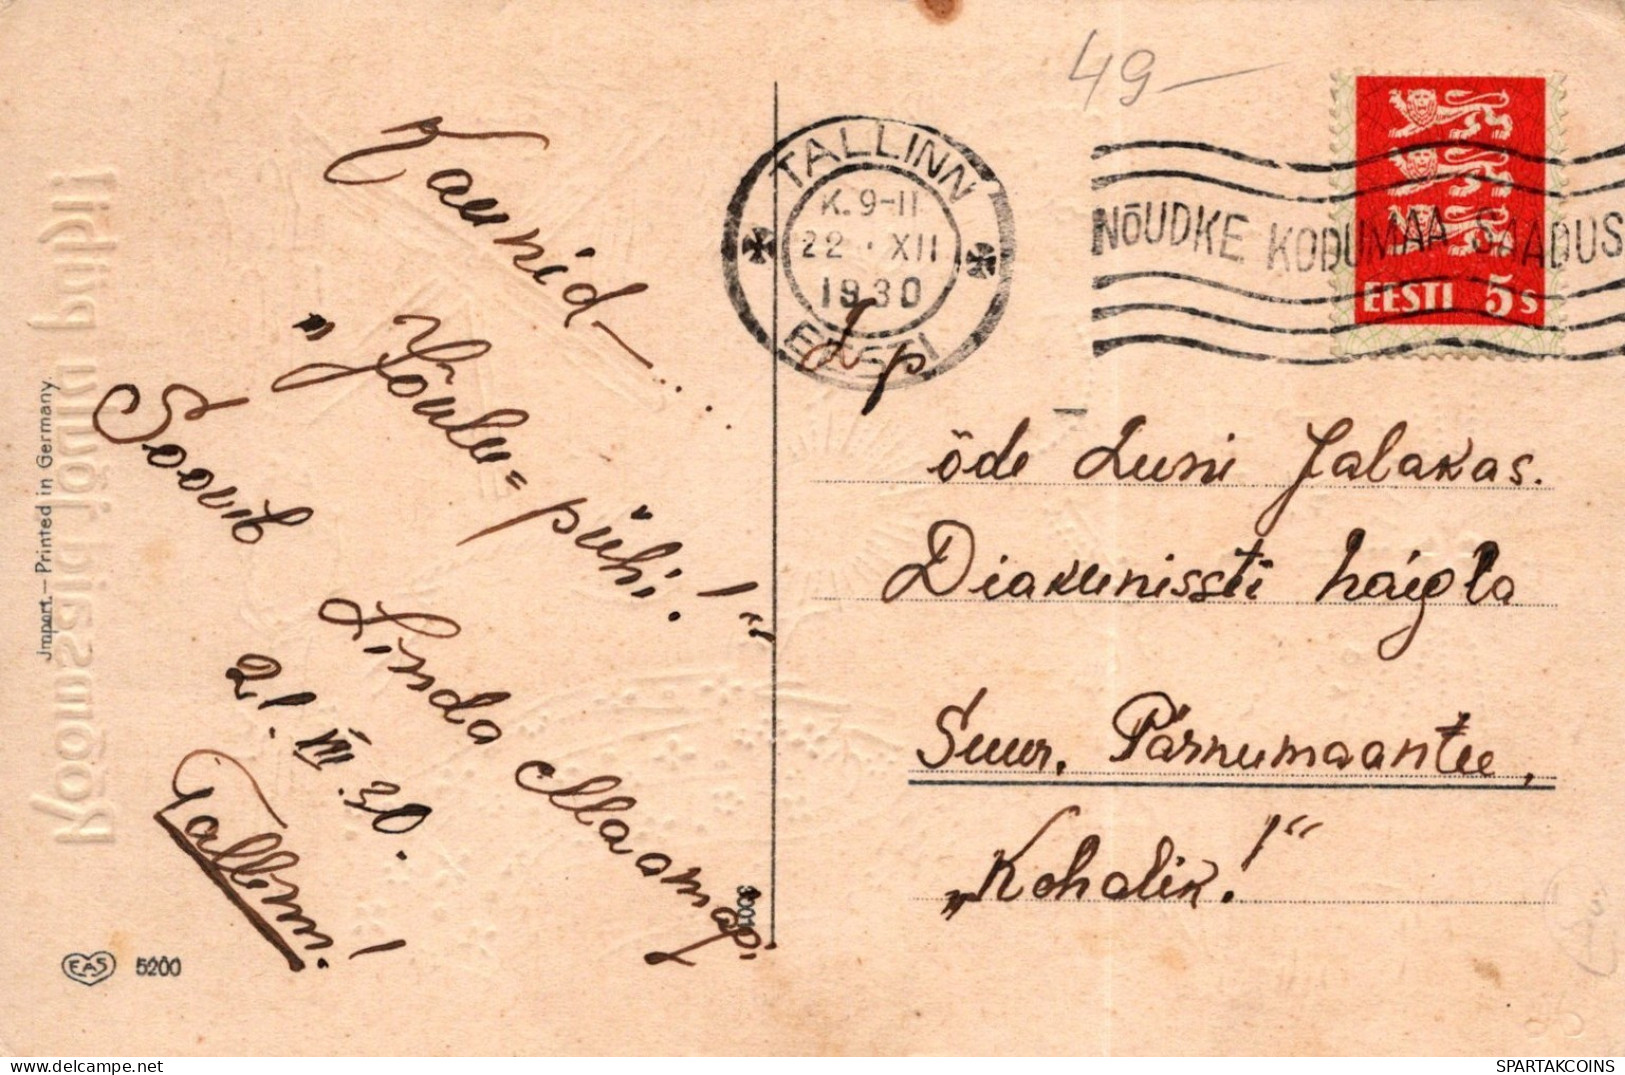 49-
TALLINN
K. 9-11
22 · XII
1930
EESTI
NÕUDKE KODUMAA SAADUS
EESTI 5s
Kaunid-
„Jõulu=pühi!"
Soovib
Linda Maamägi
21. XII. 30.
Tallinn!
L p
õde Luni Jalakas.
Diakunissti haigla
Suur. Pärnumaantee,
„Kohalik!"
Import.—Printed in Germany.
Rõõmsaid jõulu pühi!
EAS 5200
SPARTAKCOINS